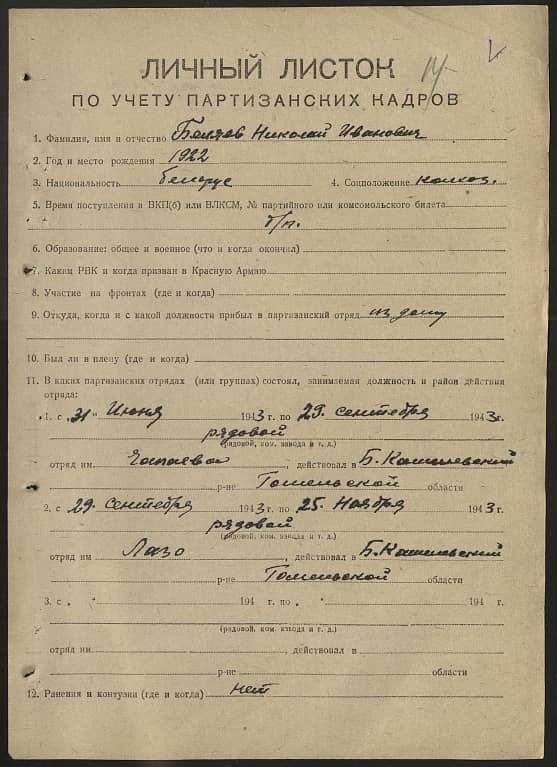 ЛИЧНЫЙ ЛИСТОК
ПО УЧЕТУ ПАРТИЗАНСКИХ КАДРОВ
1. Фамилия, имя и отчество Николай Иванович
2. Год и место рождения 1922
3. Национальность белорус 4. Соцположение колхоз.
5. Время поступления в ВКП(б) или ВЛКСМ, № партийного или комсомольского билета
б/п.
6. Образование: общее и военное (что и когда окончил)
7. Каким РВК и когда призван в Красную Армию
8. Участие на фронтах (где и когда)
9. Откуда, когда и с какой должности прибыл в партизанский отряд из дому
10. Был ли в плену (где и когда)
11. В каких партизанских отрядах (или группах) состоял, занимаемая должность и район действия
отряда:
1. с „31" Июня 1943 г. по 29. сентября 1943 г.
рядовой
(рядовой, ком. взвода и т. д.)
отряд им. Чапаева, действовал в Б. Кошелевский
р-не Гомельской области
2. с 29. сентября 1943 г. по 25. Ноября 1943 г.
рядовой
(рядовой, ком. взвода и т. д.)
отряд им Лазо, действовал в Б. Кошелевский
р-не Гомельской области
3. с „ " 194 г. по „ " 194 г.
(рядовой, ком. взвода и т. д.)
отряд им., действовал в
р-не области
12. Ранения и контузия (где и когда) нет